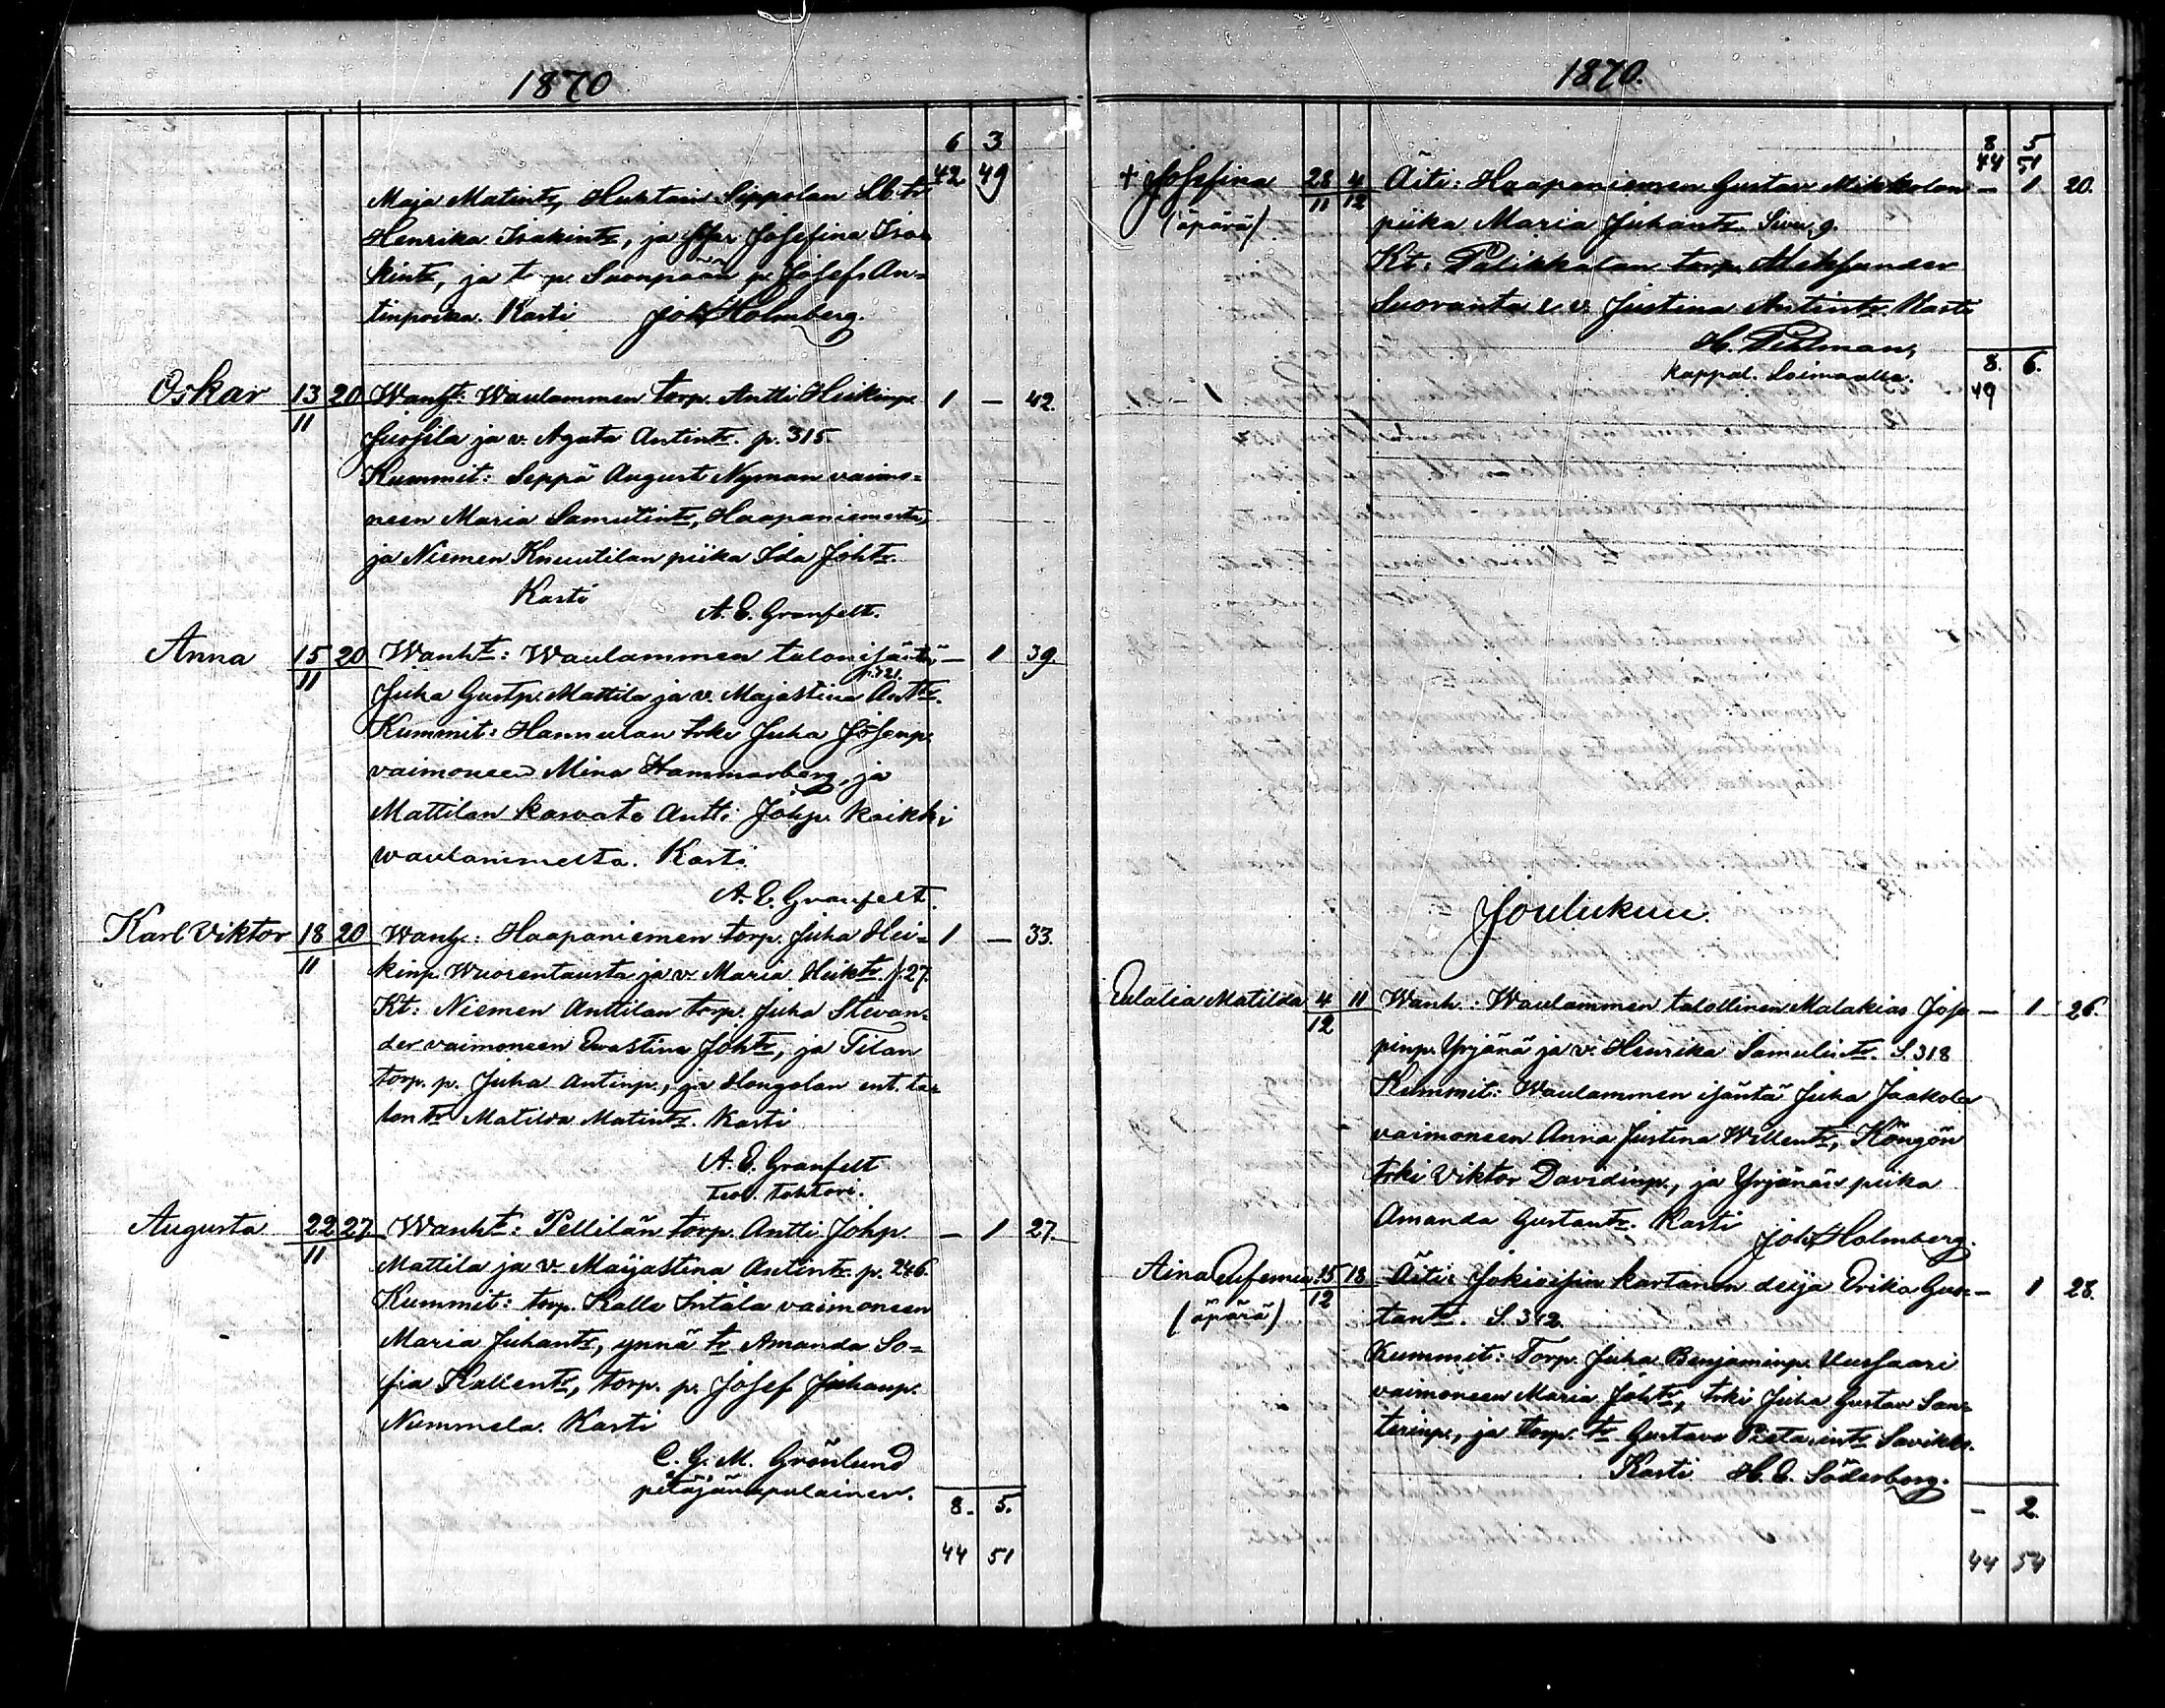 1870
6 3
42 49
Maja Matintr, Huhtain Seppolan Lb. tr
Henrika Isakintr, ja Josefina Isa-
kintr, ja t p. Suonpään p. Josef An-
tinpoika. Kasti Joh Holmberg.
Oskar 13/11 20 Wanht: Waulammen torp. Antti Heikinp. 1 — 42.
Jussila ja v. Agata Antintr. p. 315
Kummit: Seppä August Nyman vaimo-
neen Maria Samulintr, Haapaniemestä,
ja Niemen Knuutilan piika Ida Johtr.
Kasti
A. E. Granfelt.
Anna 15/11 20 Wanht: Waulammen talonisäntä — 1 39.
p. 321.
Juha Gustp. Mattila ja v. Majastina Anttr.
Kummit: Hannulan trki Juha Josefp.
vaimoneen Mina Hammarberg, ja
Mattilan kasvati Antti Johp. kaikki
waulammelta. Kasti
A. E. Granfelt.
Karl Viktor 18/11 20 Wanh: Haapaniemen torp. Juha Hei- 1 — 33.
kinp. Wuorentausta ja v. Maria Heiktr. p. 27.
Kt: Niemen Anttilan torp. Juha Stevan-
der vaimoneen Evastina Johtr, ja Tilan
torp. p. Juha Antinp., ja Hongolan ent. ta-
lon tr Matilda Matintr. Kasti
A. E. Granfelt
Teol. tohtori.
Augusta 22/11 27. Wanht: Pellilän torp. Antti Johp. — 1 27
Mattila ja v. Maijastina Antintr. p. 246.
Kummit: torp. Kalle Intala vaimoneen
Maria Juhantr, ynnä tr Amanda So-
fia Kallentr, torp. p. Josef Juhanp.
Nummela. Kasti
C. G. M. Grönlund
pitäjänapulainen.
8. 5.
44 51
1870.
8 5
44 51
+ Josefina 28/11 4/12 Äiti: Haapaniemen Gustav Mikkolan — 1 20.
(äpärä) piika Maria Juhantr. Sivu, 9.
Kt: Palikkalan torp. Aleksander
Suovanta & v. Justina Antintr. Kasti
H. Pihlman,
kappal. Loimaalla.
8. 6.
49
Joulukuu.
Eulalia Matilda 4/12 11 Wanh.: Waulammen talollinen Malakias Jose- — 1 26.
pinp. Yrjänä ja v. Henrika Samulintr. S. 318
Kummit: Waulammen isäntä Juha Jaakola
vaimoneen Anna Justina Willentr, Köngön
trki Viktor Davidinp., ja Yrjänän piika
Amanda Gustantr. Kasti
Joh Holmberg.
Aina Eufemia 15/12 18 Äiti: Jokioisin kartanon deija Erika Gus- — 1 28.
(äpärä) tantr. S. 312.
Kummit: Torp. Juha Benjaminp. Uussaari
vaimoneen Maria Johtr, trki Juha Gustav San-
terinp., ja torp. tr Gustava
Kasti H. E. Söderborg.
— 2.
44 54